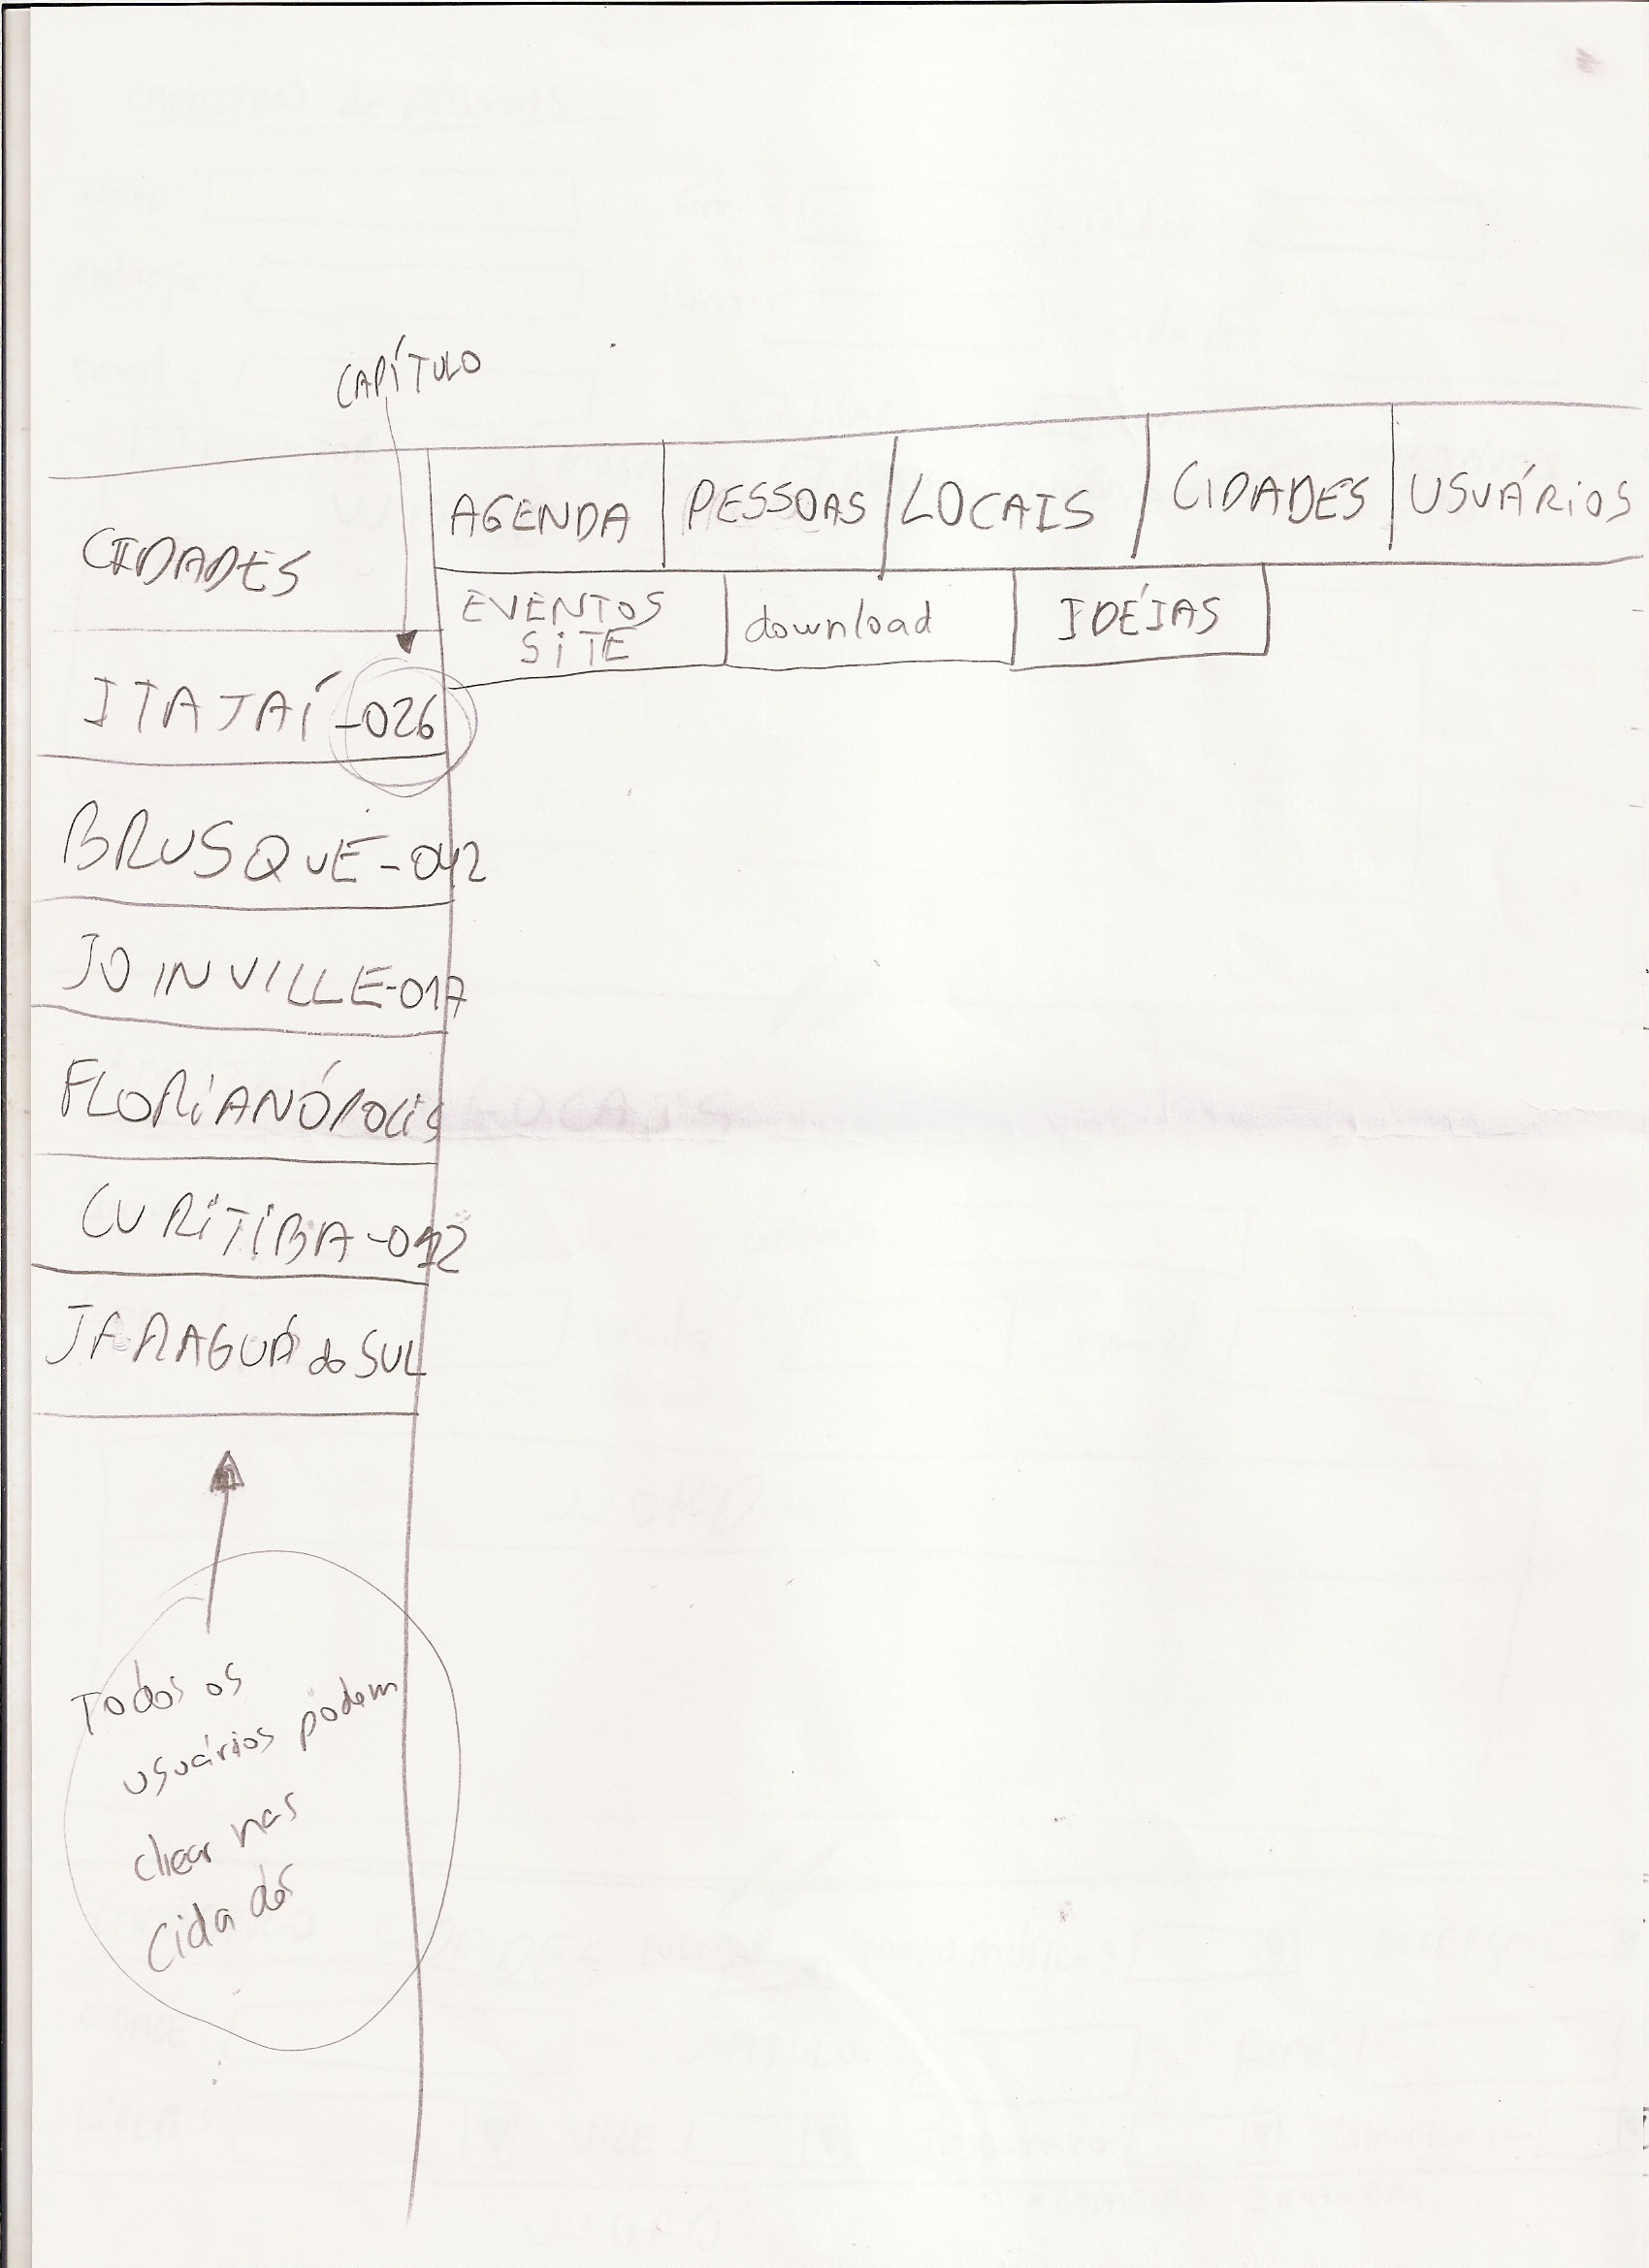 CAPÍTULO
AGENDA PESSOAS LOCAIS CIDADES USUÁRIOS
CIDADES
EVENTOS SITE download IDÉIAS
ITAJAÍ-026
BRUSQUE-042
JOINVILLE-017
FLORIANÓPOLIS
CURITIBA-012
JARAGUÁ do SUL
Todos os
usuários podem
clicar nas
cidades